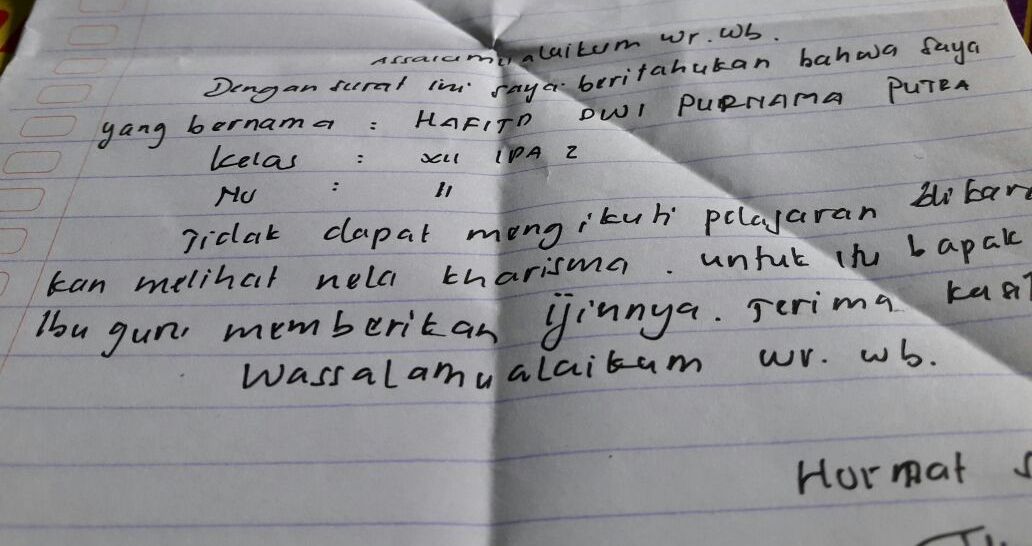 Assalamualaikum wr. wb.
Dengan surat ini saya beritahukan bahwa saya
yang bernama : HAFITD DWI PURNAMA PUTRA
Kelas : XII IPA 2
No : 11
Tidak dapat mengikuti pelajaran dikare
kan melihat nela kharisma. untuk itu bapak
Ibu guru memberikan ijinnya. Terima kasi
Wassalamualaikum wr. wb.
Hormat s